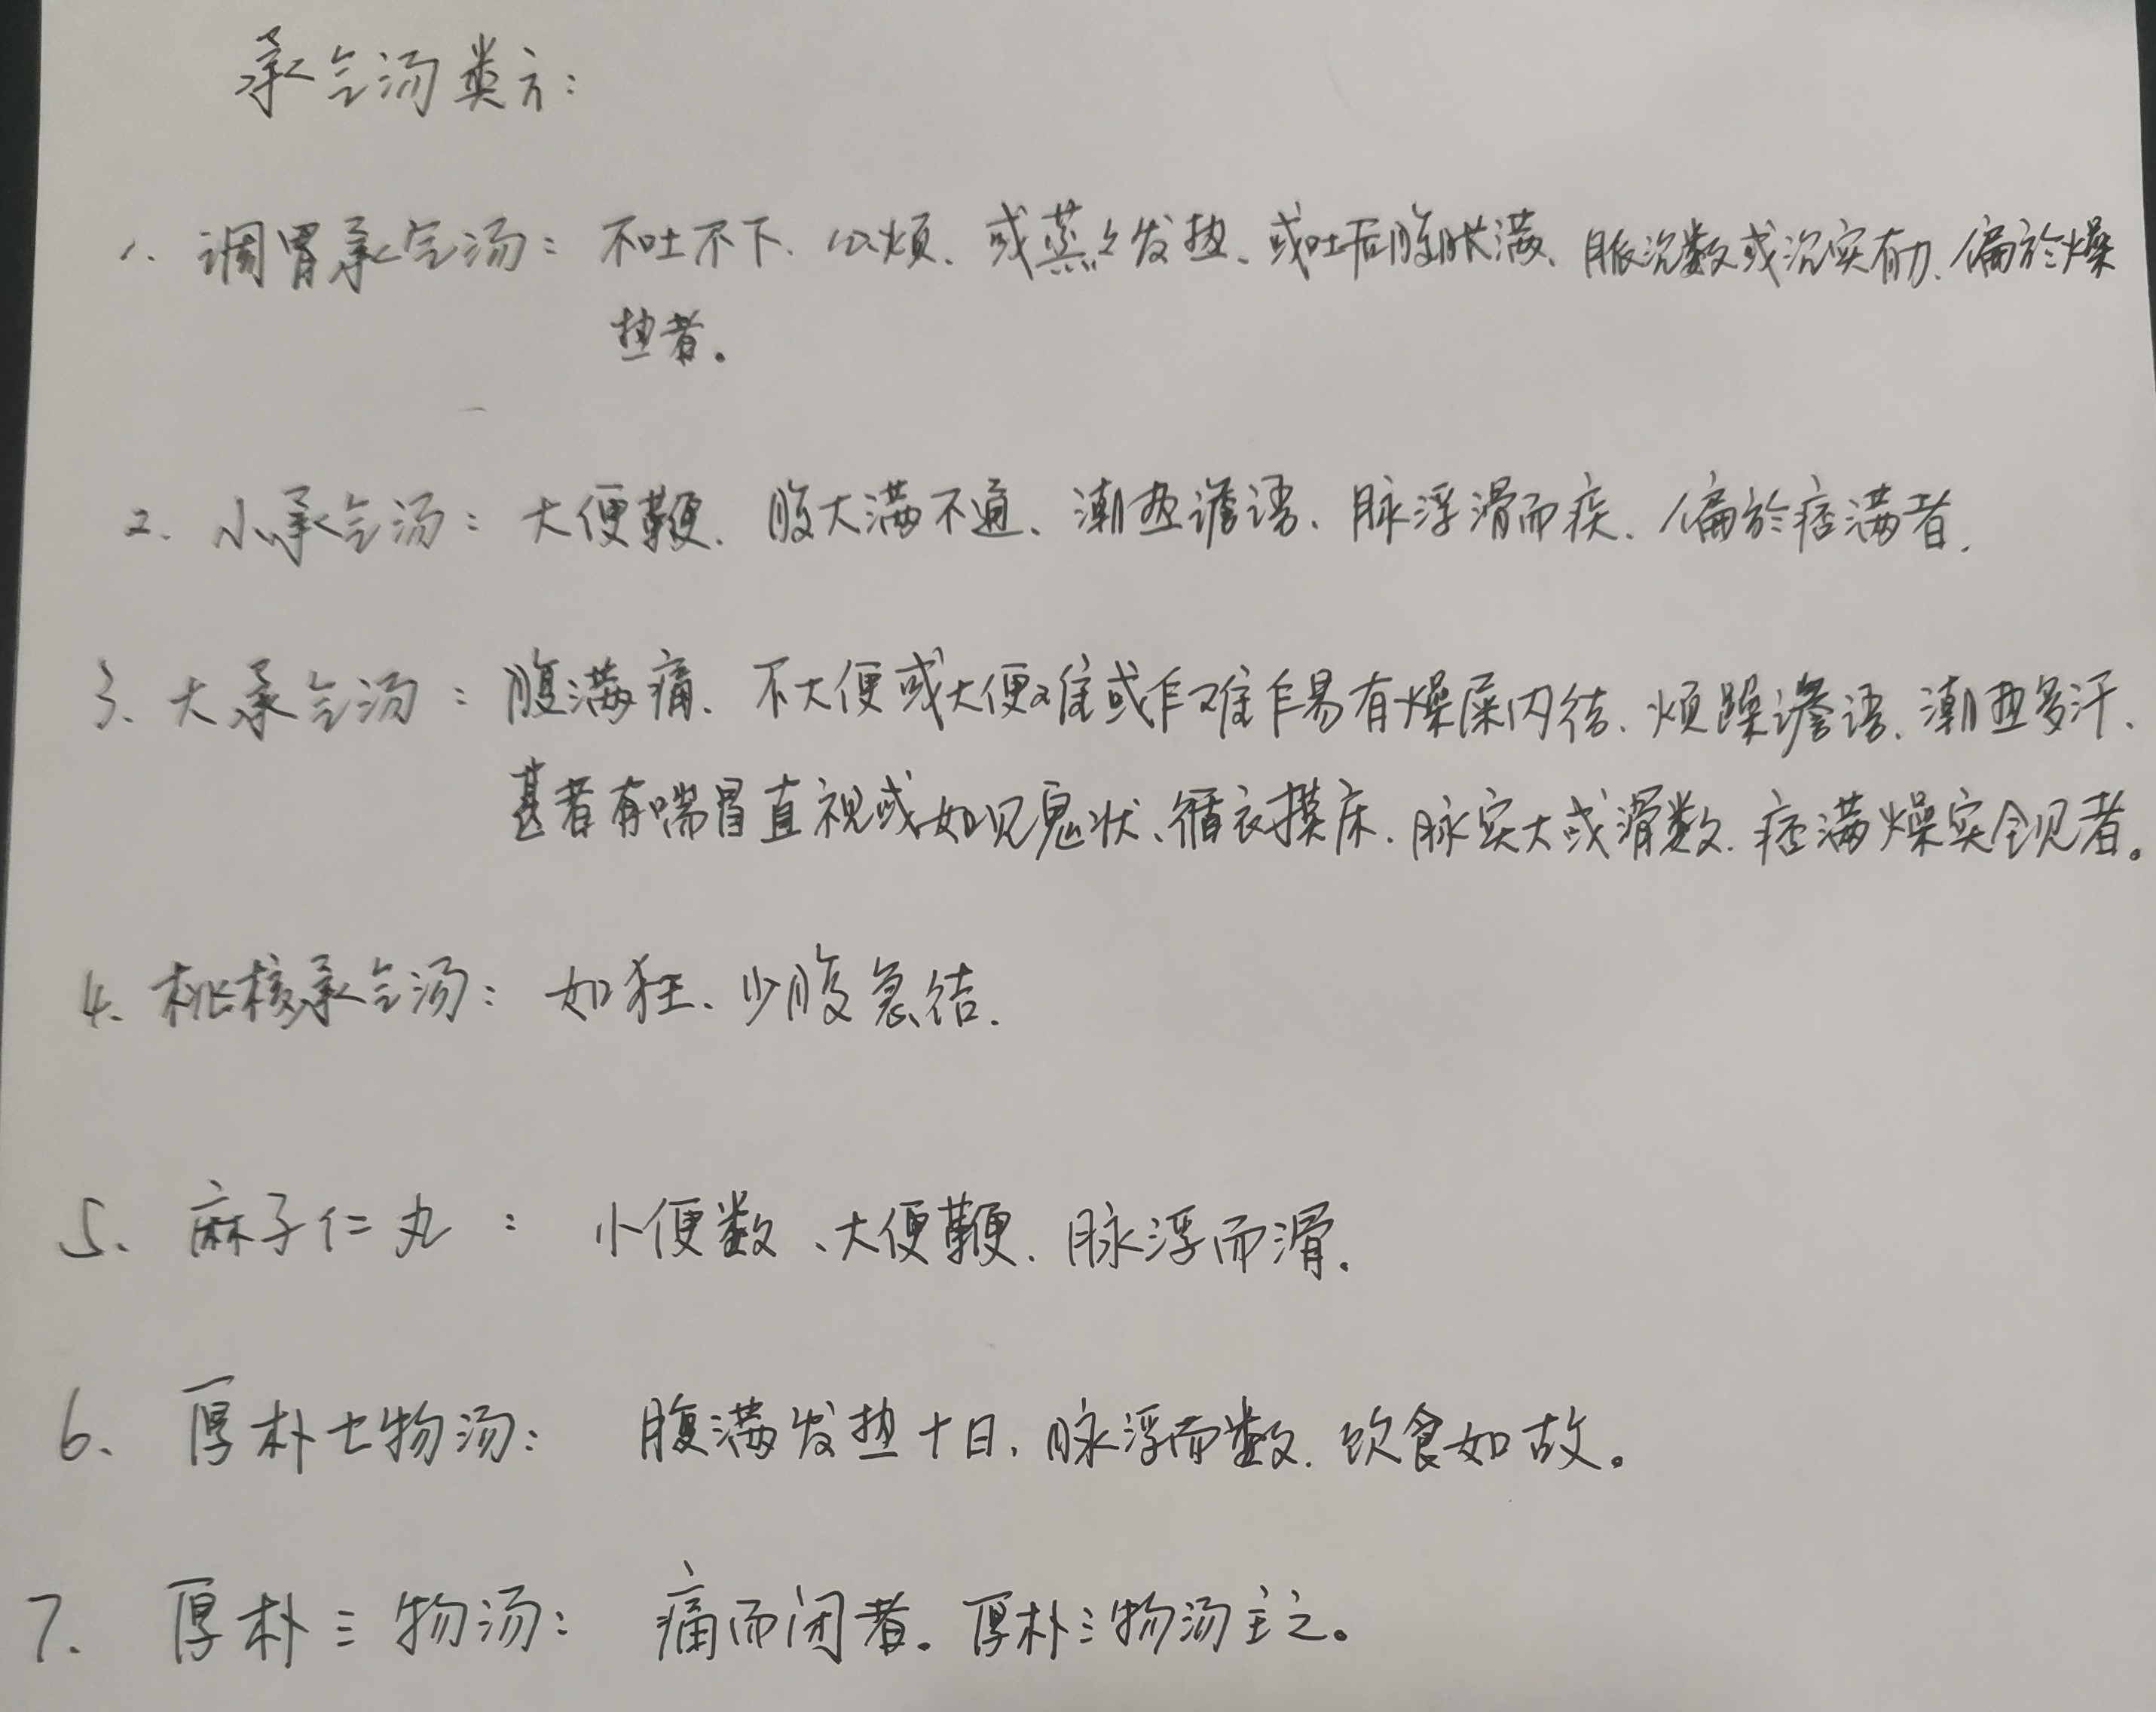 承气汤类方:
1. 调胃承气汤: 不吐不下、心烦、或蒸々发热、或吐后腹胀满、脉沉数或沉实有力、偏於燥
热者。
2. 小承气汤: 大便鞕、腹大满不通、潮热谵语、脉浮滑而疾、偏於痞满者.
3、大承气汤: 腹满痛、不大便或大便难或乍难乍易有燥屎内结、烦躁谵语、潮热多汗、
甚者有喘冒直视或如见鬼状、循衣摸床、脉实大或滑数、痞满燥实全见者。
4、桃核承气汤: 如狂、少腹急结.
5、麻子仁丸: 小便数、大便鞕、脉浮而滑.
6、厚朴七物汤: 腹满发热十日、脉浮而数、饮食如故。
7. 厚朴三物汤: 痛而闭者。厚朴三物汤主之。